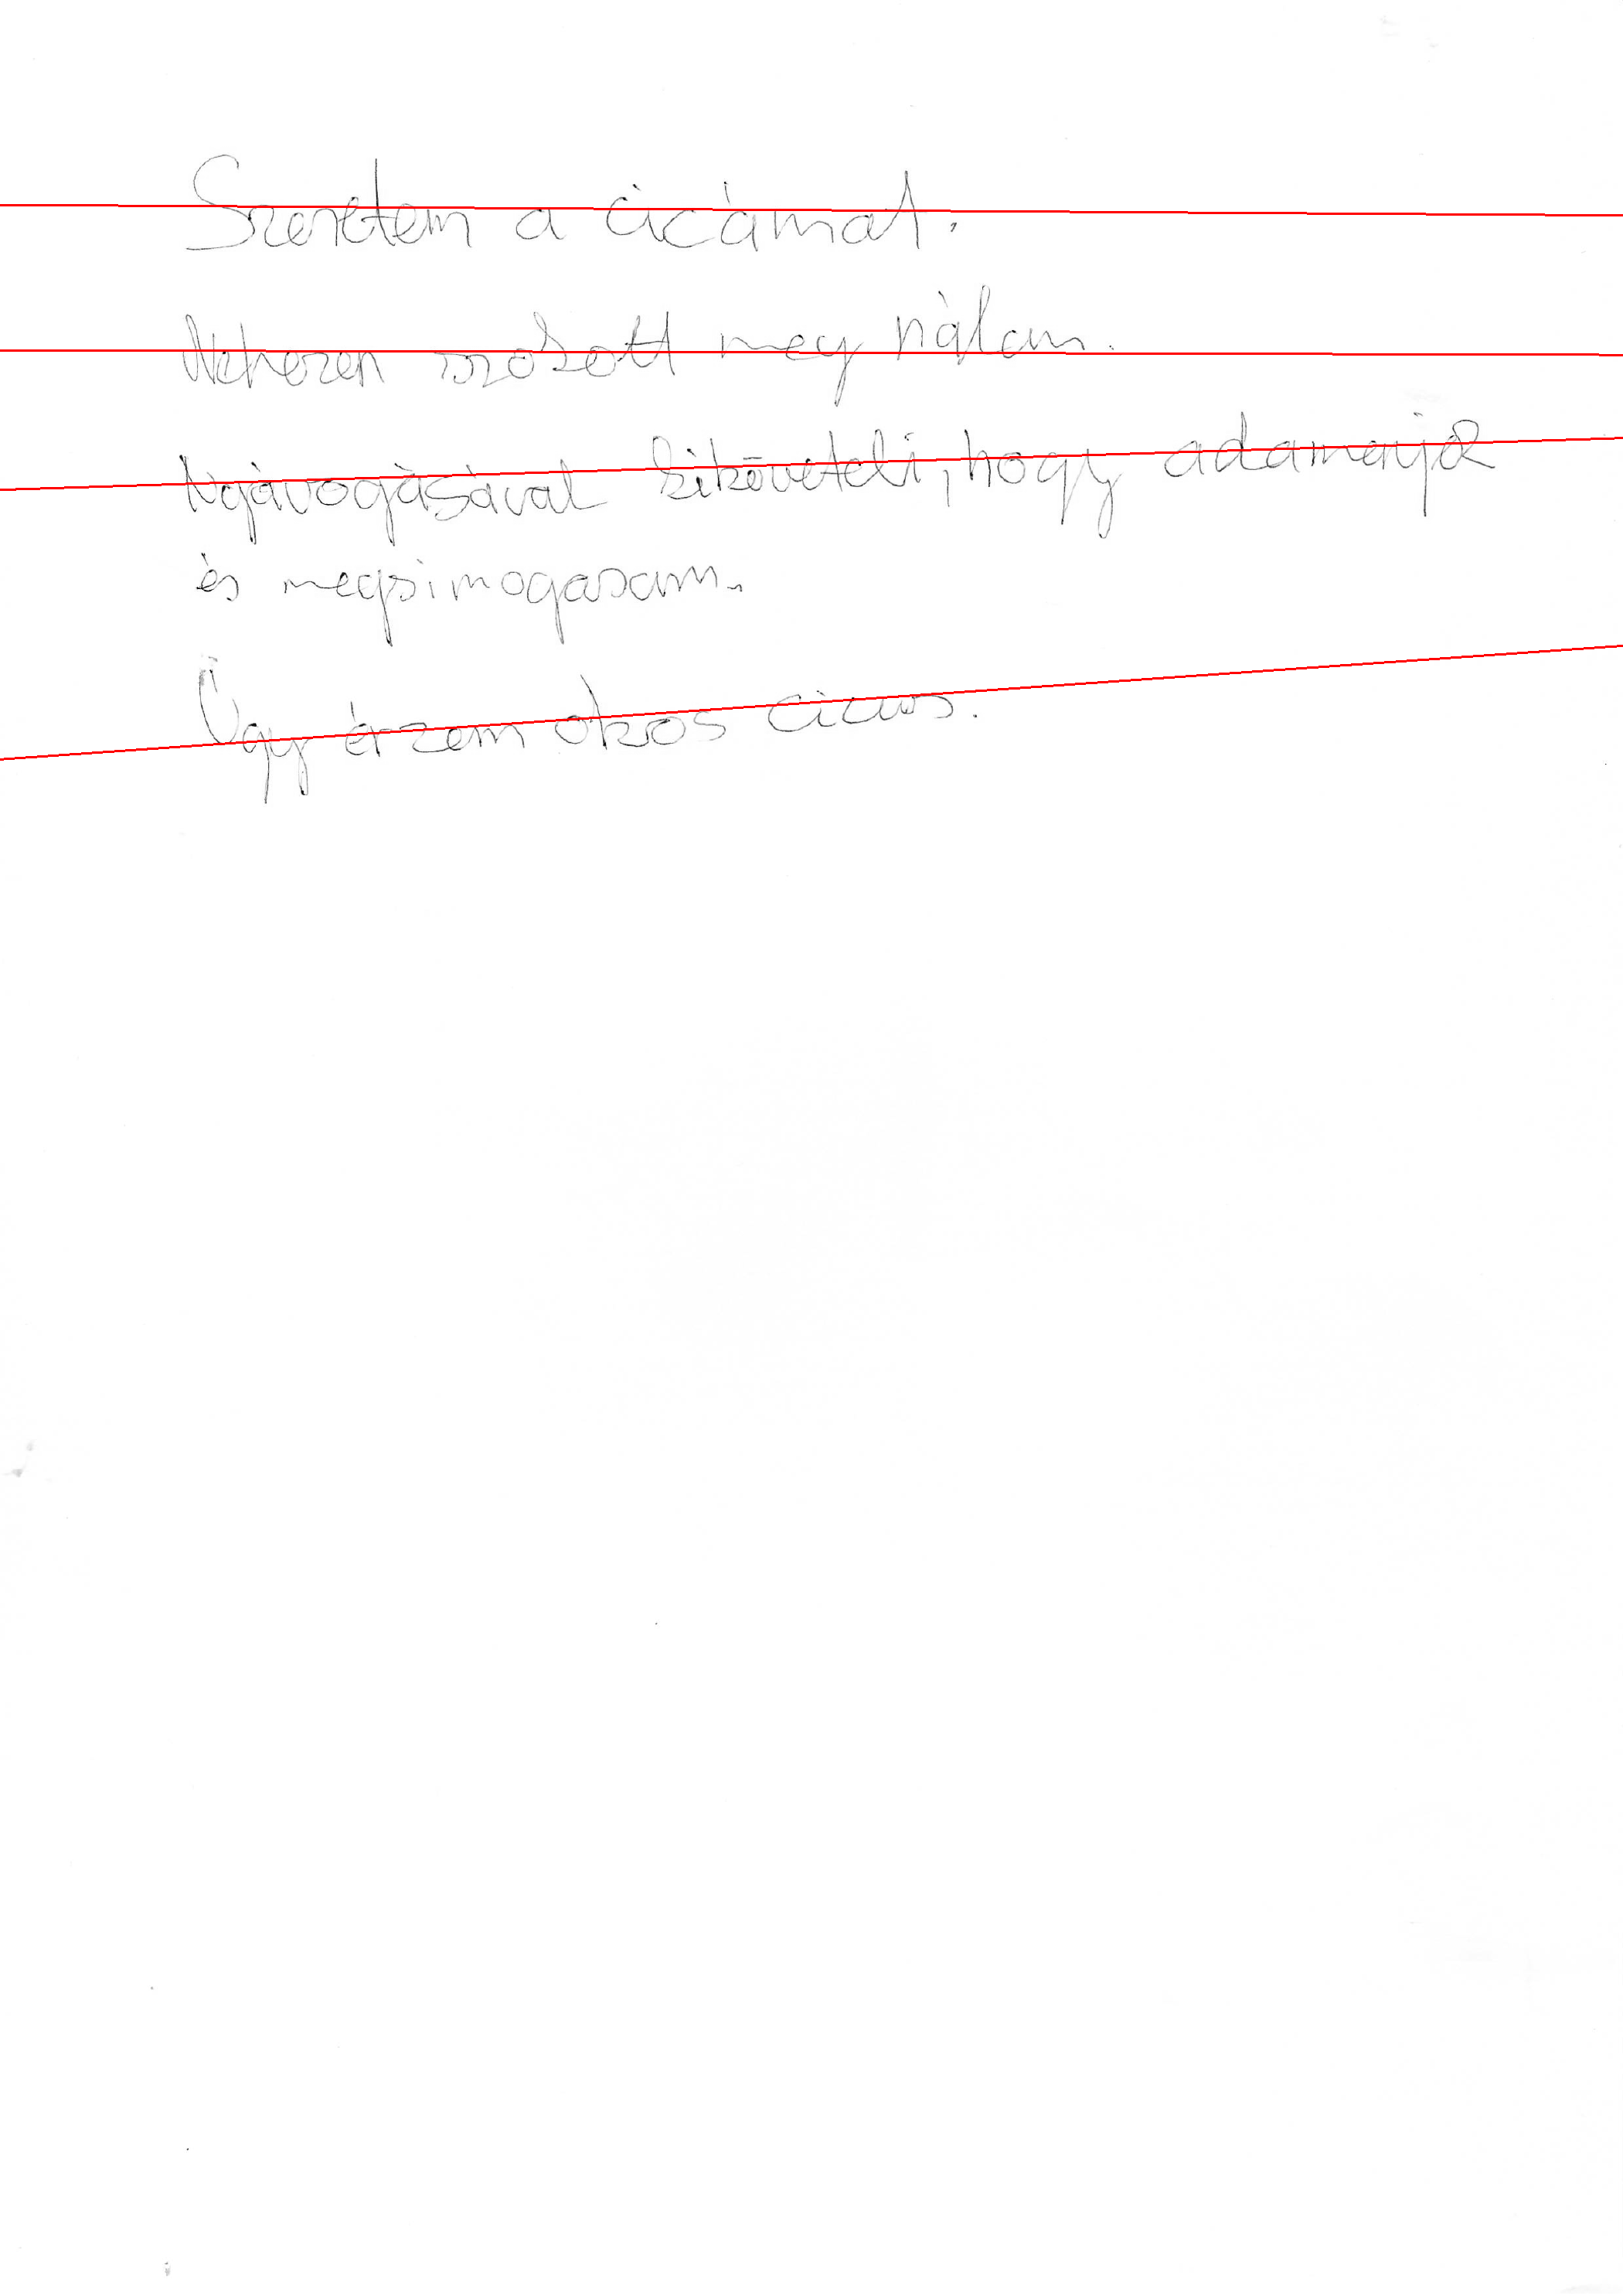 Szeretem a cicámat.
Nehezen szokott meg nálam.
Nyávogásával kiköveteli, hogy odamenjek
és megsimogassam.
Úgy érzem okos cicus.